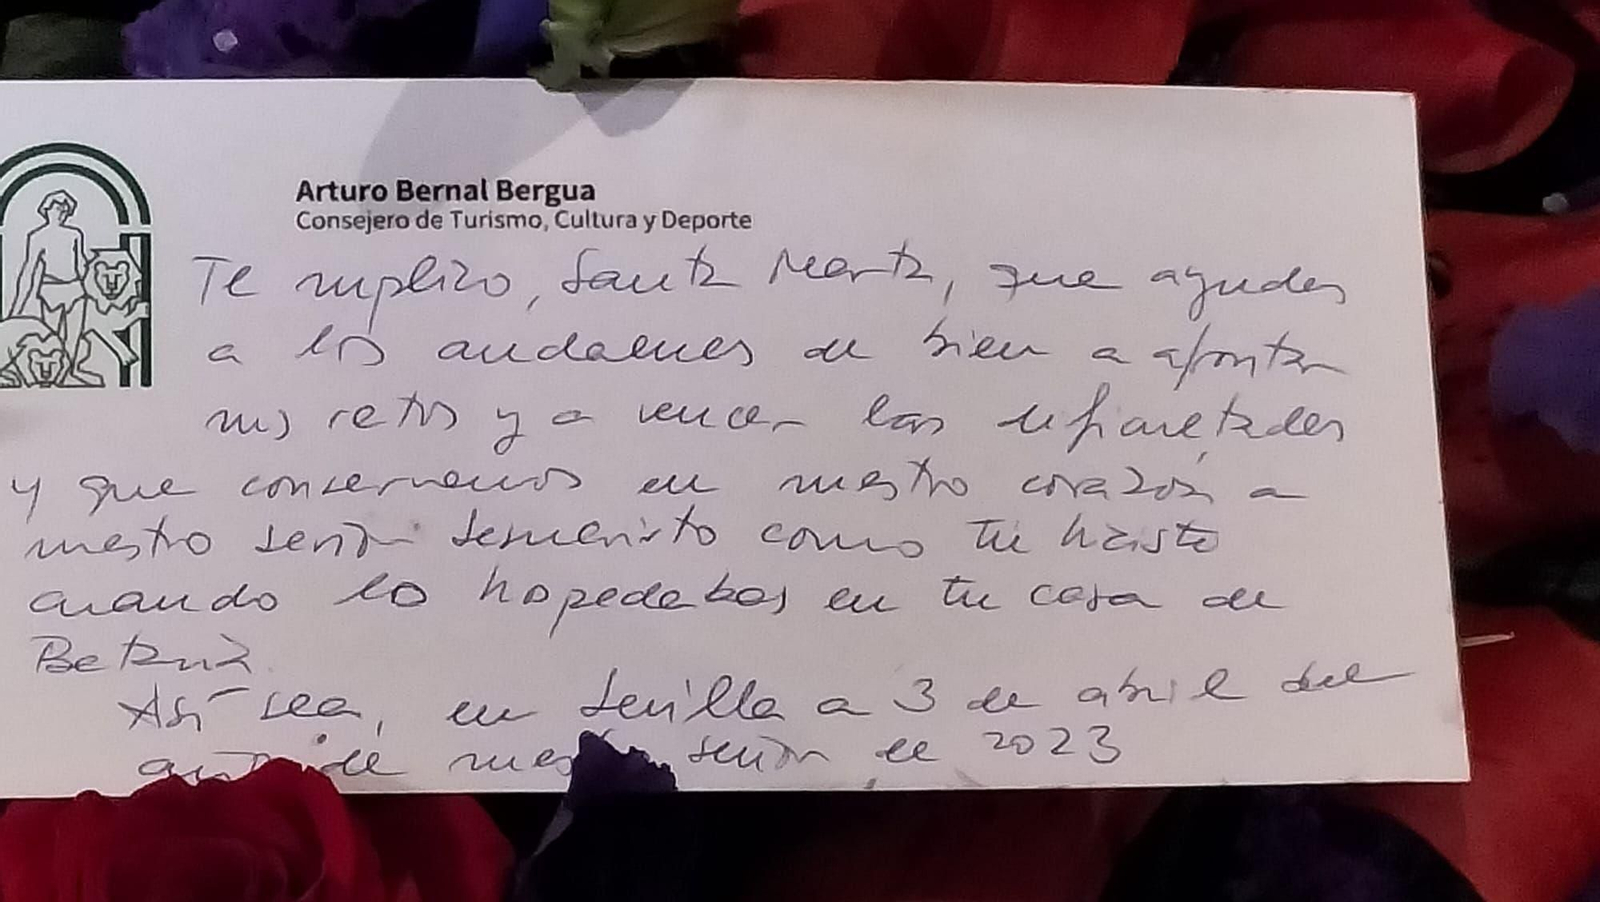 Arturo Bernal Bergua
Consejero de Turismo, Cultura y Deporte
Te suplico, Santa Marta, que ayudes
a los andaluces de bien a afrontar
sus retos y a vencer las dificultades
y que conservemos en nuestro corazón a
nuestro señor Jesucristo como tú hiciste
cuando lo hospedabas en tu casa de
Betania.
Así sea, en Sevilla a 3 de abril del
de señor de 2023